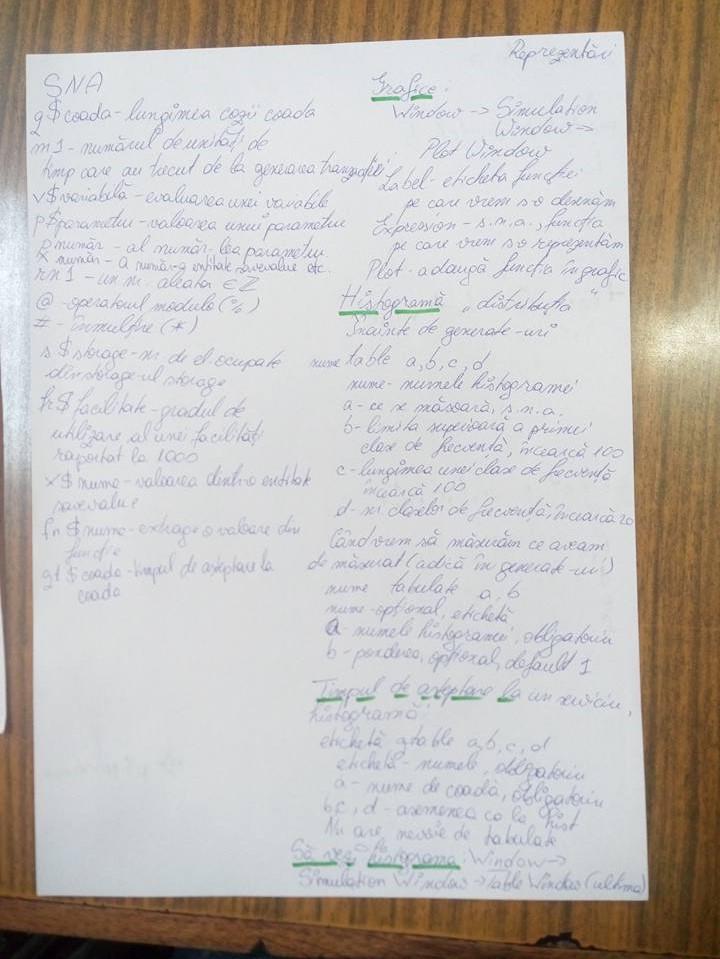 SNA
q$coada - lungimea cozii coada
m1 - numărul de unități de
timp care au trecut de la generarea tranzacției
v$variabilă - evaluarea unei variabile
p$parametru - valoarea unui parametru
p număr - al număr-lea parametru
x număr - a număr-a entitate savevalue etc.
rn1 - un nr. aleator ∈ Z
@ - operatorul modulo (%)
# - înmulțire (*)
s$storage - nr de el ocupate
din storage-ul storage
fr$facilitate - gradul de
utilizare al unei facilități
raportat la 1000
x$nume - valoarea dintr-o entitate
savevalue
fn$nume - extrage o valoare din
funcție
qt$coada - timpul de așteptare la
coada
Reprezentări
Grafice:
Window -> Simulation
Window ->
Plot Window
Label - eticheta funcției
pe care vrem s-o desenăm
Expression - s.n.a., funcția
pe care vrem s-o reprezentăm
Plot - adaugă funcția în grafic
Histogramă "distribuția"
Înainte de generate-uri
nume table a, b, c, d
nume - numele histogramei
a - ce se măsoară, s.n.a.
b - limita superioară a primei
clase de frecvență, încearcă 100
c - lungimea unei clase de frecvență
încearcă 100
d - nr claselor de frecvență, încearcă 20
Când vrem să măsurăm ce aveam
de măsurat (adică în generate-uri)
nume tabulate a, b
nume - opțional, etichetă
a - numele histogramei, obligatoriu
b - ponderea, opțional, default 1
Timpul de așteptare la un serviciu,
histogramă:
etichetă qtable a, b, c, d
etichetă - numele, obligatoriu
a - nume de coadă, obligatoriu
b, c, d - asemenea ca la hist
Nu are nevoie de tabulate
Să vezi histograma: Window ->
Simulation Window -> Table Window (ultima)